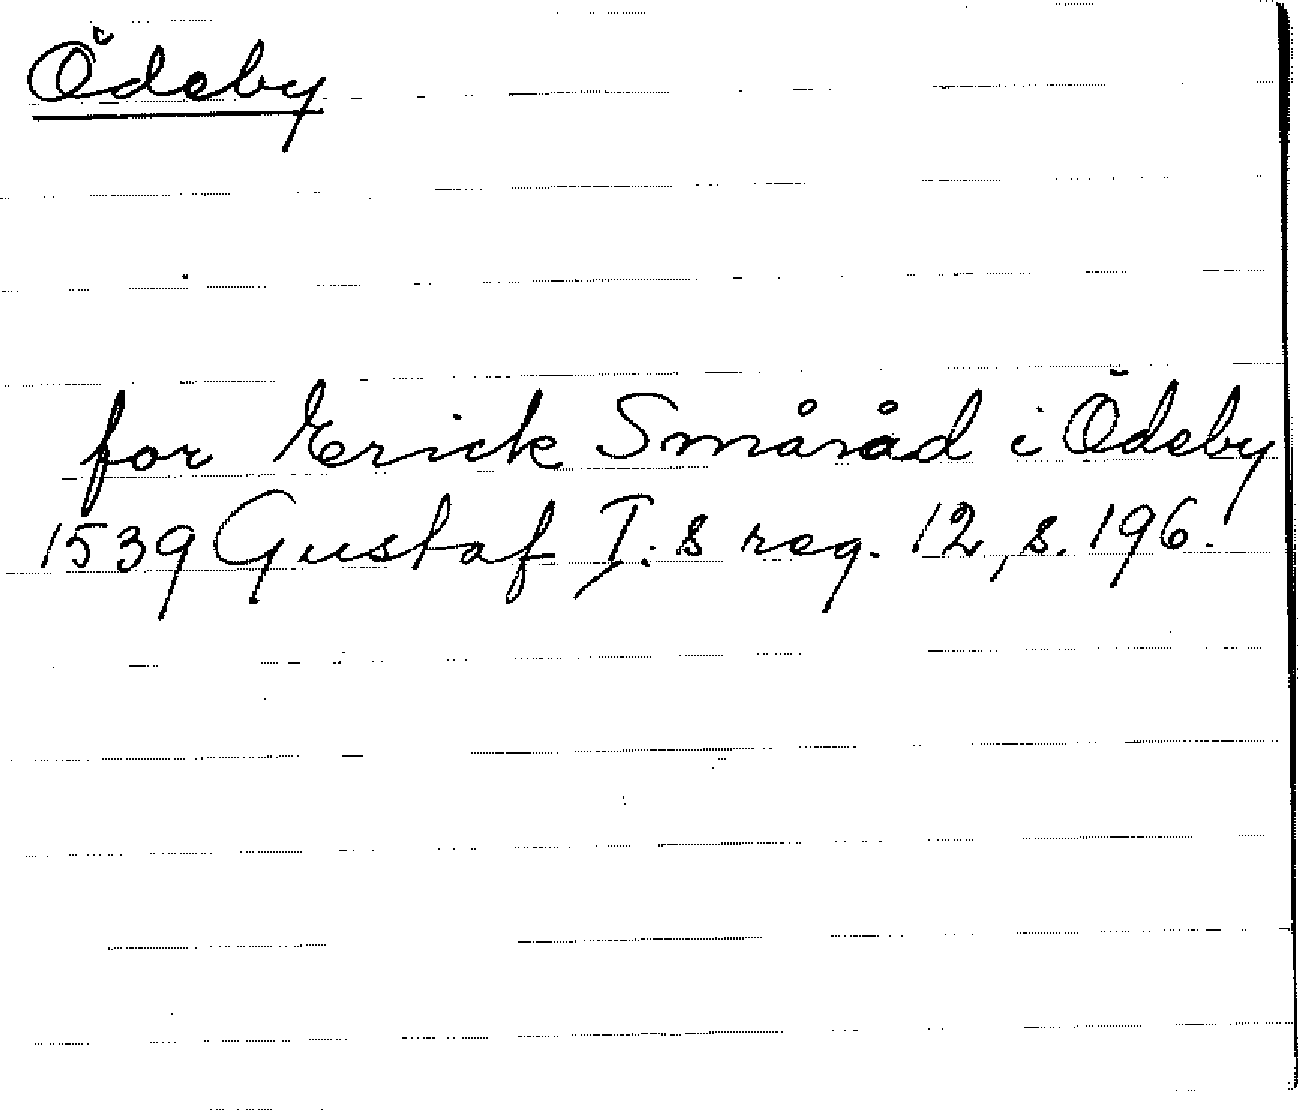 Ödeby
for Erick Småråd i Ödeby
1539 Gustaf I:s reg. 12, s. 196.